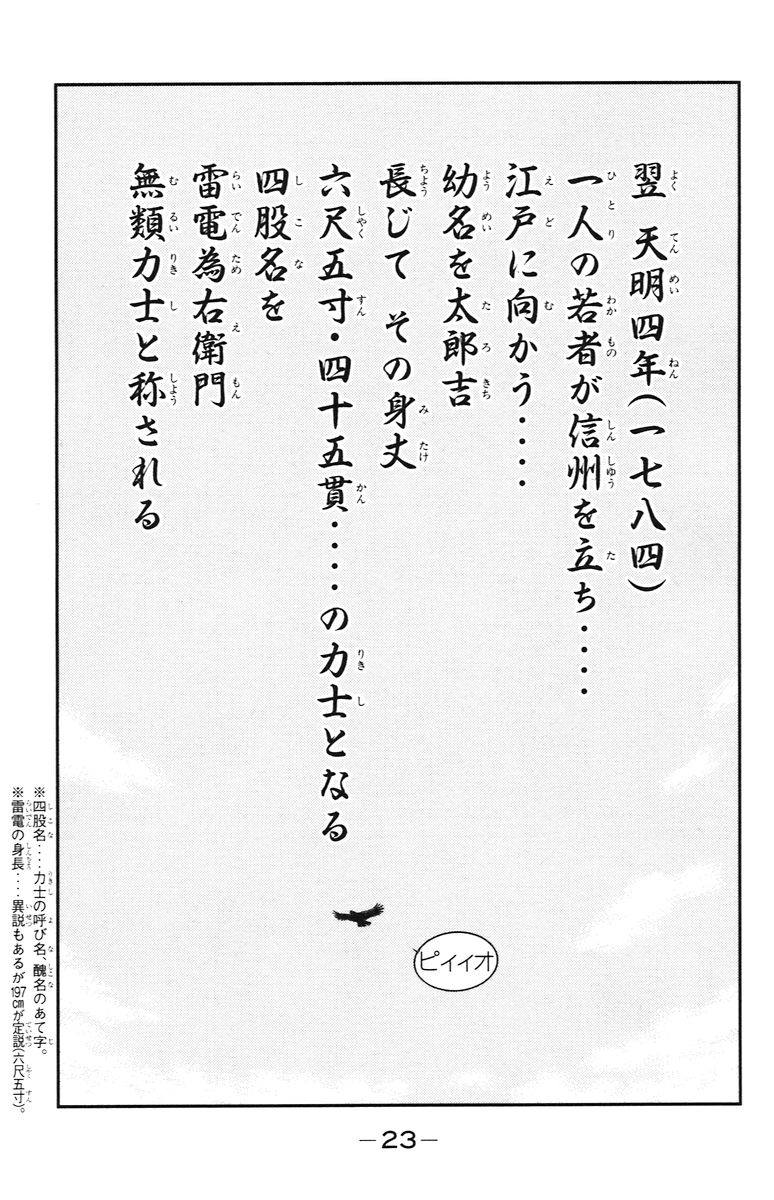 翌 天明四年(一七八四)
一人の若者が信州を立ち・・・・
江戸に向かう・・・・
幼名を太郎吉
長じて その身丈
六尺五寸・四十五貫・・・・の力士となる
四股名を
雷電為右衛門
無類力士と称される
ピィィオ
※四股名・・・力士の呼び名、醜名のあて字。
※雷電の身長・・・異説もあるが197cmが定説(六尺五寸)。
—23—